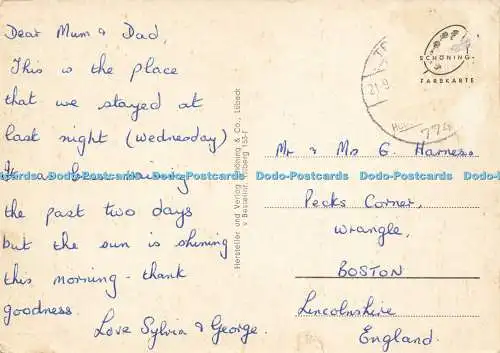 Dear Mum & Dad,
This is the place
that we stayed at
last night (Wednesday)
It has been raining
the past two days
but the sun is shining
this morning - thank
goodness.
Love Sylvia & George.
Hersteller und Verlag Schöning & Co., Lübeck
SCHÖNING-
FARBKARTE
21.9
774
Mr & Mrs G. Harness.
Pecks Corner,
Wrangle,
BOSTON
Lincolnshire
England.
Dodo-Postcards Dodo-Postcards Dodo-Postcards Dodo-Postcards Dodo-Postcards